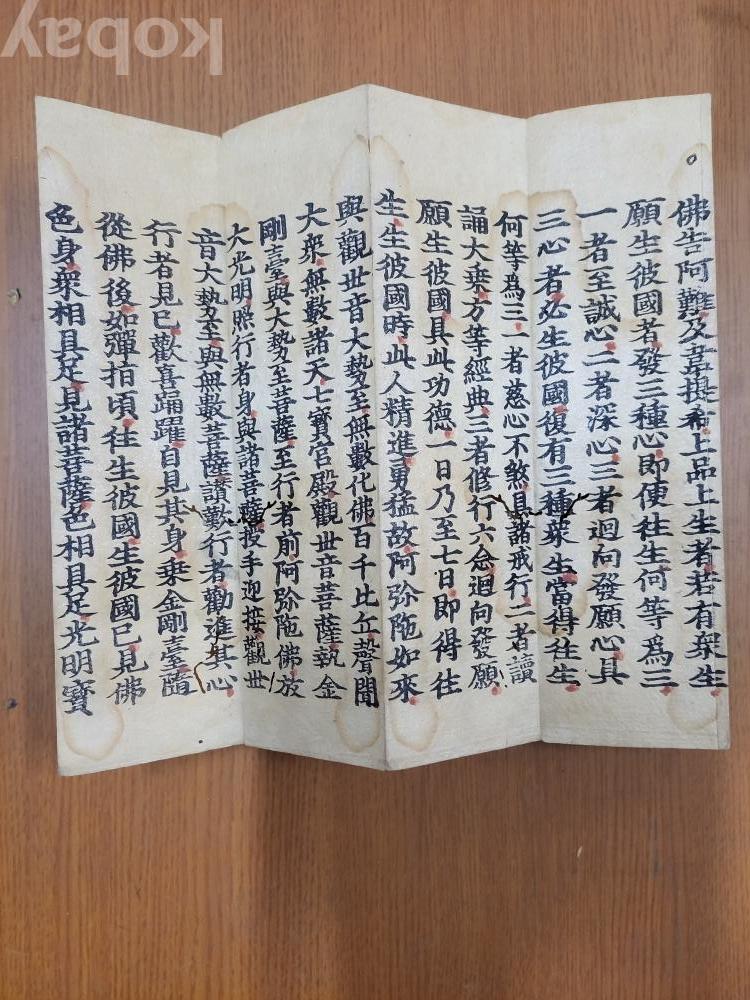 佛告阿難及韋提希上品上生者若有衆生
願生彼國者發三種心即使往生何等爲三
一者至誠心二者深心三者迴向發願心具
三心者必生彼國復有三種衆生當得往生
何等爲三一者慈心不煞具諸戒行二者讀
誦大乗方等經典三者修行六念迴向發願
願生彼國具此功德一日乃至七日即得往
生生彼國時此人精進勇猛故阿弥陁如來
與觀世音大勢至無數化佛百千比丘聲聞
大衆無數諸天七寶官殿觀世音菩薩執金
剛臺與大勢至菩薩至行者前阿弥陁佛放
大光明照行者身與諸菩薩授手迎接觀世
音大勢至與無數菩薩讃歎行者勸進其心
行者見已歡喜踊躍自見其身乗金剛臺隨
從佛後如彈指頃往生彼國生彼國已見佛
色身衆相具足見諸菩薩色相具足光明寶
kobay